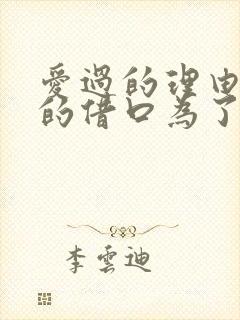 愛過的理由
的借口為了
李雲迪